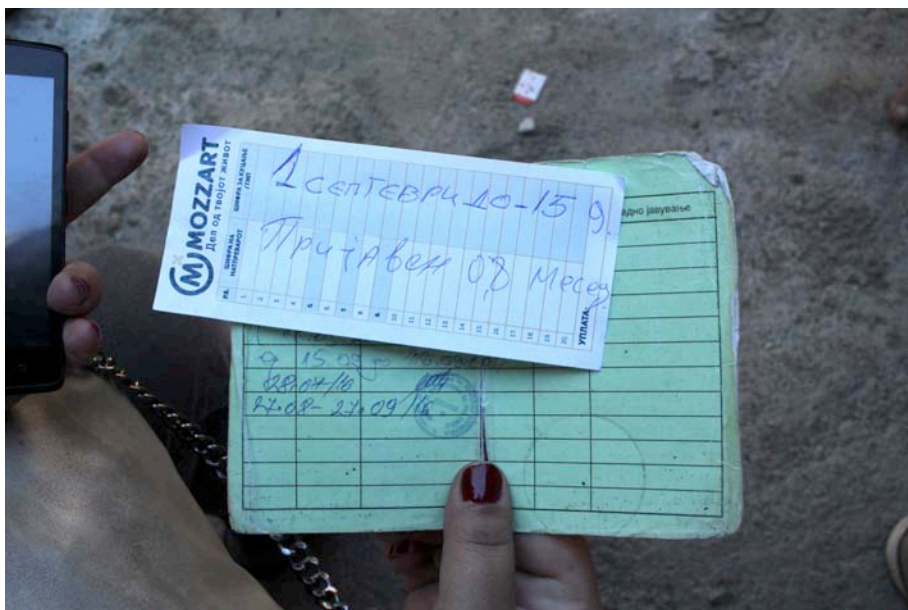 MOZZART
Дел од твојот живот
РБ.
ШИФРА НА НАТПРЕВАРОТ
ШИФРА ЗА КУЦАЊЕ /ТИП
1.
2.
3.
4.
5.
6.
7.
8.
9.
10
11
12
13
14
15
16
17
18
19
20
УПЛАТА:
1 СЕПТЕВРИ ДО-15 9.
Пријавен 08 Месец
адно јавување
15.09
28.07/16
27.08-27.09/16